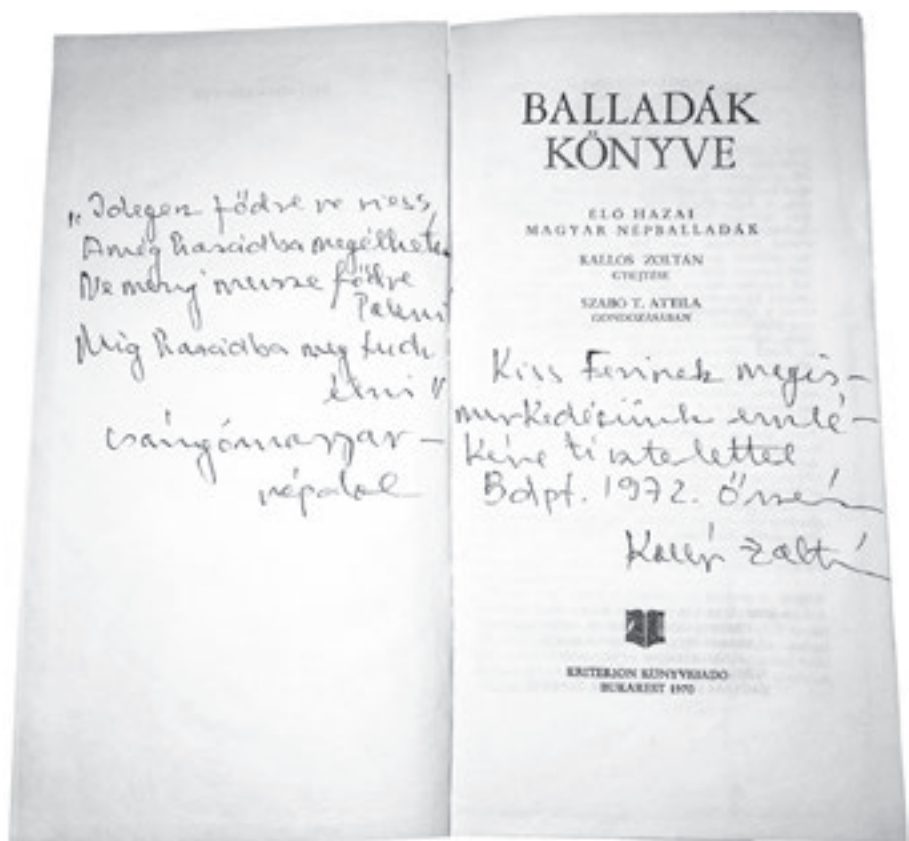 „Idegen födre ne mess
Amég hazádba megélhetsz
Ne menj messze födre
lakni
Míg hazádba meg tudsz
élni"
csángómagyar-
népdal
BALLADÁK
KÖNYVE
ÉLŐ HAZAI
MAGYAR NÉPBALLADÁK
KALLÓS ZOLTÁN
GYŰJTÉSE
SZABÓ T. ATTILA
GONDOZÁSÁBAN
Kiss Ferinek megis-
merkedésünk emlé-
kére tisztelettel
Bdpt. 1972. őszén
Kallós Zoltán
KRITERION KÖNYVKIADÓ
BUKAREST 1970